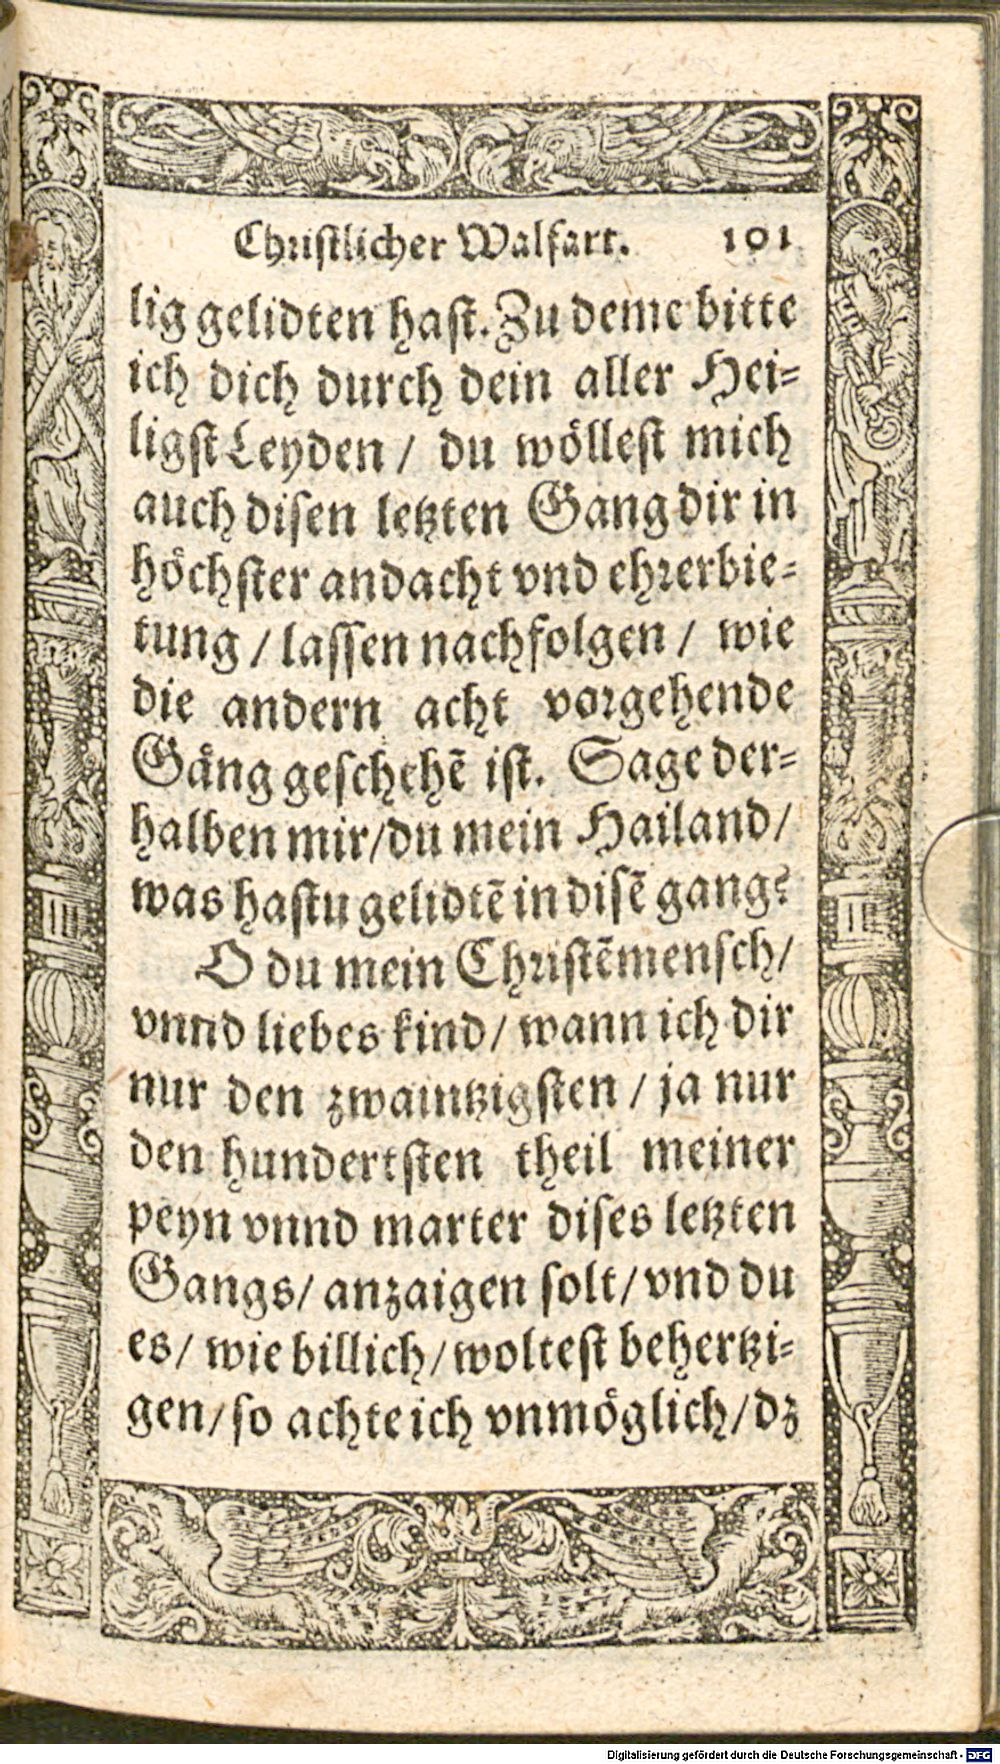 Christlicher Walfart. 101
lig gelidten hast. Zu deme bitte
ich dich durch dein aller Hei-
ligst Leyden / du wöllest mich
auch disen letzten Gang dir in
höchster andacht vnd ehrerbie-
tung / lassen nachfolgen / wie
die andern acht vorgehende
Gäng geschehẽ ist. Sage der-
halben mir/du mein Hailand/
was hastu gelidtẽ in disẽ gang?
O du mein Christẽmensch/
vnnd liebes kind/ wann ich dir
nur den zwaintzigsten / ja nur
den hundertsten theil meiner
peyn vnnd marter dises letzten
Gangs/ anzaigen solt/ vnd du
es/ wie billich/ woltest behertzi-
gen/ so achte ich vnmöglich/ dz
Digitalisierung gefördert durch die Deutsche Forschungsgemeinschaft - DFG